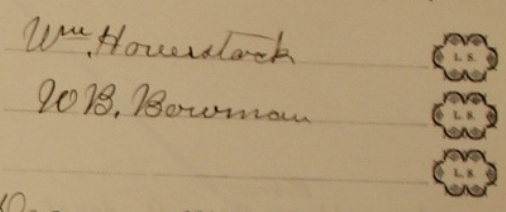 Wm. Hoverstock L. S.
W B. Bowman L. S.
L. S.